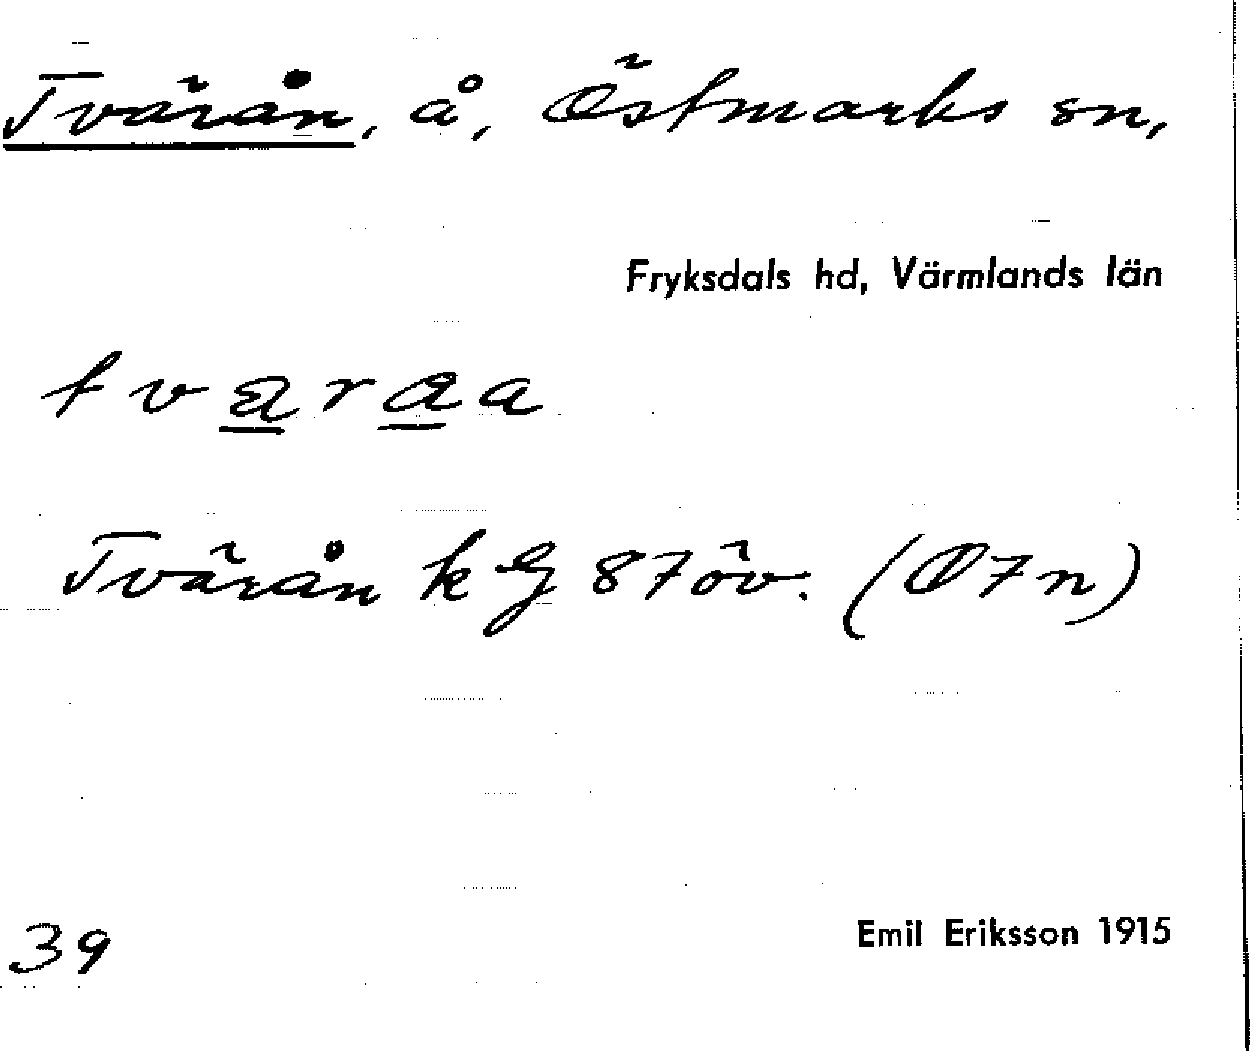 Tvärån, å, Östmarks sn,
Fryksdals hd, Värmlands län
tvaraa
Tvärån kG 87öv. (Ø7n)
39
Emil Eriksson 1915